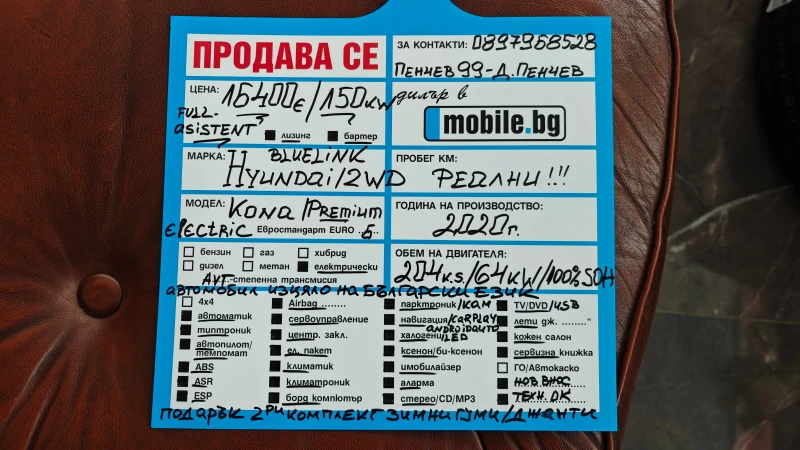 ПРОДАВА СЕ
ЗА КОНТАКТИ: 0897968528
ПЕНЧЕВ 99-Д.ПЕНЧЕВ
ЦЕНА: 16400€/150KW
FULL-
ASISTENT
лизинг бартер
дилър в
mobile.bg
МАРКА: BLUELINK
Hyundai/2WD
ПРОБЕГ КМ:
РЕАЛНИ!!!
МОДЕЛ: KONA/PREMIUM
ELECTRIC Евростандарт EURO 6
ГОДИНА НА ПРОИЗВОДСТВО:
2020г.
бензин газ хибрид
дизел метан електрически
ОБЕМ НА ДВИГАТЕЛЯ:
204K.S./64KW/100% SOH
АVТ.-степенна трансмисия
АВТОМОБИЛ ИЗЦЯЛО НА БЪЛГАРСКИ ЕЗИК
4x4 Airbag ........ парктроник/КАМ TV/DVD/USB
автоматик сервоуправление навигация/CARPLAY лети дж. ........"
ANDROIDAUTO
типтроник центр. закл. халогени/LED кожен салон
автопилот/
темпомат ел. пакет ксенон/би-ксенон сервизна книжка
ABS климатик имобилайзер ГО/Автокаско
ASR климатроник аларма НОВ ВНОС
ESP борд компютър стерео/CD/MP3 ТЕХН. ОК
ПОДАРЪК 2РИ КОМПЛЕКТ ЗИМНИ ГУМИ/ДЖАНТИ